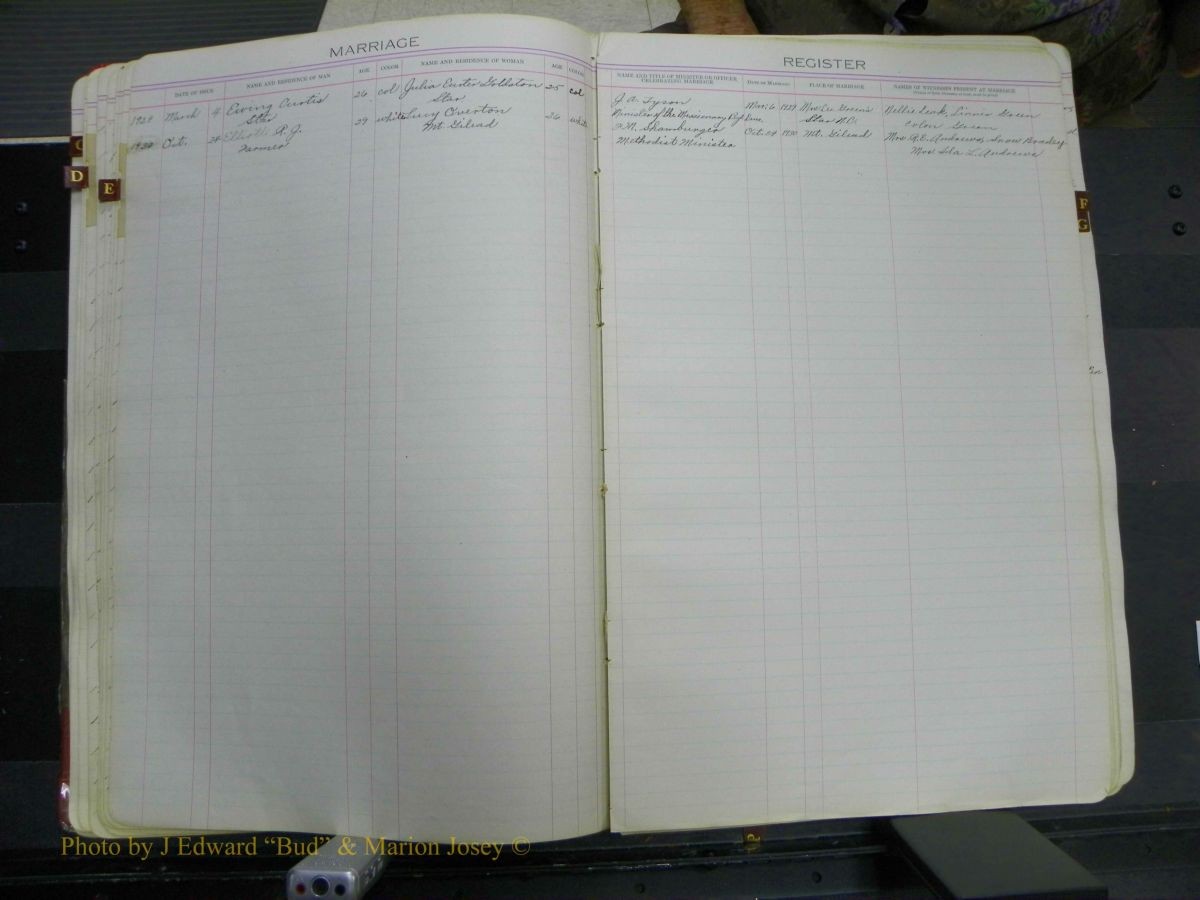 MARRIAGE
REGISTER
DATE OF ISSUE NAME AND RESIDENCE OF MAN AGE COLOR NAME AND RESIDENCE OF WOMAN AGE COLOR
NAME AND TITLE OF MINISTER OR OFFICER CELEBRATING MARRIAGE DATE OF MARRIAGE PLACE OF MARRIAGE NAMES OF WITNESSES PRESENT AT MARRIAGE
March 4 Ewing Curtis 26 col Julia Easter 25 col
Star Star
Oct. 24 Elliott R. J. 29 white Lucy Overton 26 white
Farmer Mt. Gilead
J. A. Tyson Mar. 6 Green's Nellie Leak, Green
Minister of the Missionary Star N.C. Green
F. M. Shamburger Oct. 24 1930 Mt. Gilead Mrs R. E. Andrews, Snow
Methodist Minister Mrs Ila L. Andrews
D
E
F
G
Photo by J Edward “Bud” & Marion Josey ©